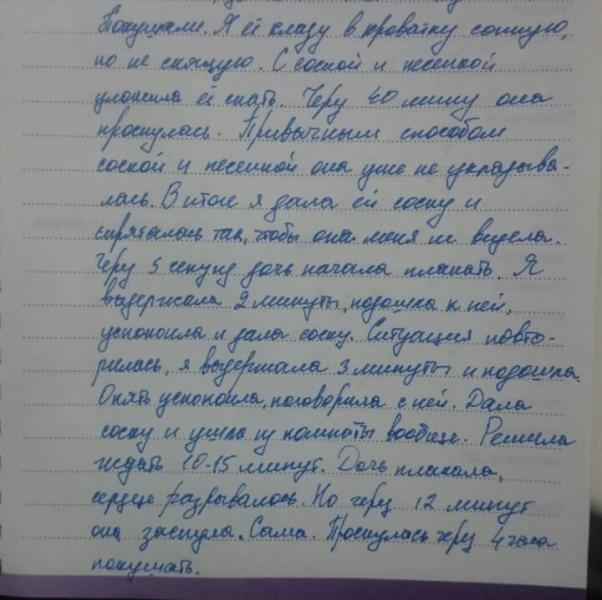 Покушали. Я её кладу в кроватку сонную,
но не спящую. С соской и песенкой
уложила её спать. Черу 40 мину она
проснулась. Привычным способом
соской и песенкой она уже не укладыва-
лась. В итоге я дала ей соску и
спряталась так, чтобы она меня не видела.
Черу 5 секунд дочь начала плакать. Я
выдержала 2 минуты, подошла к ней,
успокоила и дала соску. Ситуация повто-
рилась, я выдержала 3 минуты и подошла.
Опять успокоила, поговорила с ней. Дала
соску и ушла из комнаты вообще. Решила
ждать 10-15 минут. Дочь плакала,
сердце разрывалось. Но через 12 минут
она заснула. Сама. Проснулась через 4 часа
покушать.